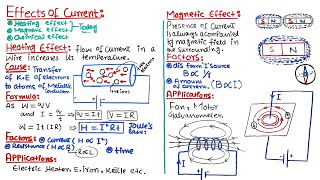 Effects of Current:
Heating effect
Magnetic effect
Chemical effect
Today
Heating Effect: flow of Current in a
wire increases its temperature.
Cause: Transfer
of K.E of electrons
to atoms of Metallic
Conductor.
Formula:
As W = QV
and I = Q/t => Q = It => V = IR
W = It(IR) => H = I²Rt Joule's Law:
Factors: Current (H ∝ I²)
Resistance (H ∝ R) time
Applications:
Electric Heater, Iron, Kettle etc.
Magnetic Effect:
Presence of Current
is always accompanied
by magnetic field in
the surrounding.
S N S N
S N
FACTORS:
dis from I source
B ∝ 1/r
Amount
of Current. (B ∝ I)
Applications:
Fan, Motor
Galvanometer
I
I